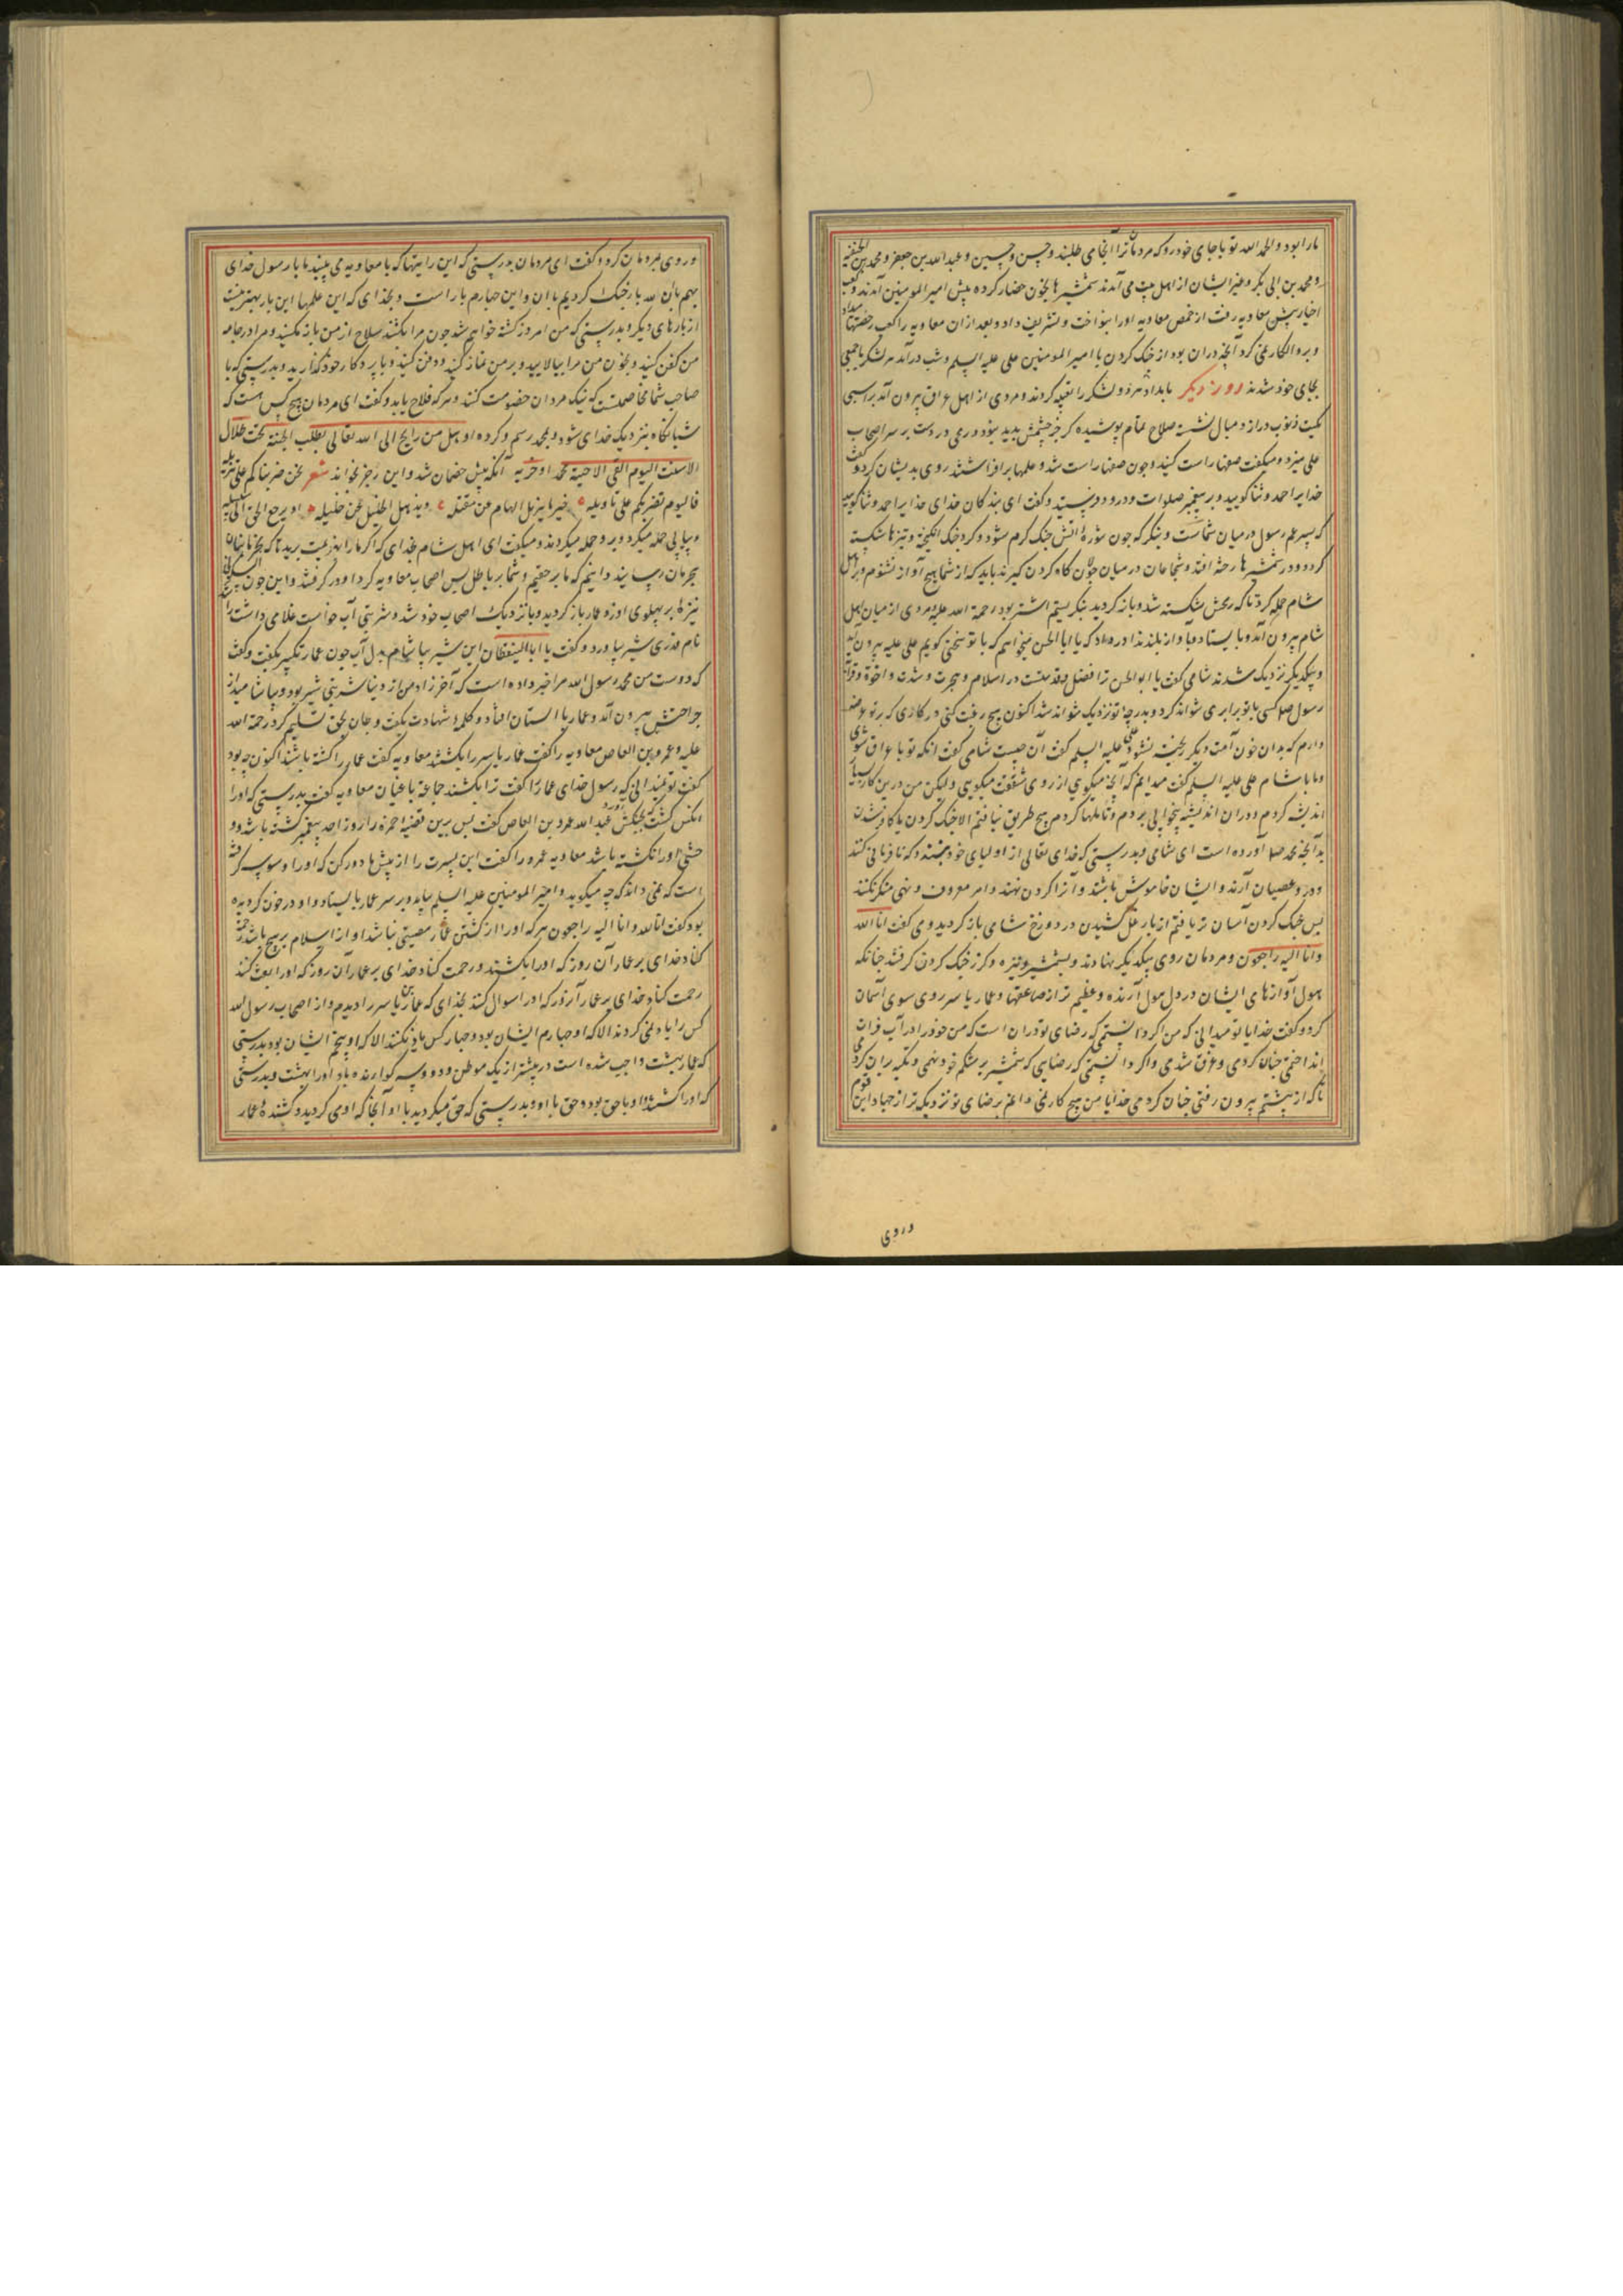 ما را بود والحمد الله تو با جای خود رو که مردمان ترا آنجا می طلبند و حسن و حسین و عبد الله بن جعفر و محمد بن الحنفیه
و محمد بن ابی بکر و غیر ایشان از اهل بیت می آمدند شمشیرها بخون خضاب کرده پیش امیر المومنین آمدند و کعب
احبار پیش معاویه رفت از حمص معاویه او را بنواخت و تشریف داد و بعد از آن معاویه را کعب
و بر و انکار نمی کرد آنچه در آن بود از جنگ کردن با امیر المومنین علی علیه السلم و شب در آمد هر لشکر با جمعی
بجای خود شدند روز دیگر بامداد هر دو لشکر را تعبیه کردند و مردی از اهل عراق بیرون آمد بر اسبی
کمیت ذنوب دراز دنبال نشسته سلاح تمام پوشیده که جز چشمش پدید نبود و رمحی در دست بر سر اصحاب
علی میزد و میگفت صفها راست کنید و چون صفها راست شد و علمها بر افراشتند روی بدیشان کرد و گفت
خدایرا حمد و ثنا گویید و بر پیغمبر صلوات و درود فرستید و گفت ای بندگان خدای خدایرا حمد و ثنا گویید
که پسر عم رسول در میان شماست و بنگر که چون سورهٔ آتش جنگ گرم شود و گرد جنگ انگیخته و نیزها شکسته
گردد و در شمشیرها رخنه افتد و شجاعان در میان جولان گاه گردن گیرند باید که از شما هیچ آواز نشنوم و بر اهل
شام حمله کرد تا که رمحش شکسته شد و باز گردید بنگریستم اشتر بود رحمة الله علیه و مردی از میان اهل
شام بیرون آمد و بایستاد و بآواز بلند ندا در داد که یا ابا الحسن میخواهم که با تو سخنی گویم علی علیه بیرون آمد
و بیکدیگر نزدیک شدند شامی گفت یا ابو الحسن ترا فضل و قدمتست در اسلام و هجرت و شدت و اخوة و قرآن
رسول صلعم کسی با تو برابری نتواند کرد و بدرجه تو نزدیک نتواند شد اکنون هیچ رغبت کنی در کاری که بر تو عرض
دارم که بدان خون امت دیگر ریخته نشود علی علیه السلم گفت آن چیست شامی گفت آنکه تو با عراق شوی
و ما با شام علی علیه السلم گفت میدانم که آنچه میگوی از روی شفقت میگویی ولیکن من درین کار بسیار
اندیشه کردم و در آن اندیشه بیخوابی بردم و تأملها کردم هیچ طریق نیافتم الا جنگ کردن یا کافر شدن
بدآنچه محمد صلعم آورده است ای شامی و بدرستی که خدای تعالی از اولیای خود نپسندد که نافرمانی کنند
و در و عصیان آرند و ایشان خاموش باشند و آنرا گردن نهند و امر معروف و نهی منکر نکنند
پس جنگ کردن آسان تر یافتم از بار غل کشیدن در دوزخ شامی باز گردید و می گفت انا الله
و انا الیه راجعون و مردمان روی بیکدیگر نهادند و بشمشیر و نیزه و گرز جنگ کردن گرفتند چنانکه
هول آوازهای ایشان در دل هول آرنده و عظیم تر از صاعقها و عمار یاسر روی سوی آسمان
کرد و گفت خدایا تو میدانی که من اگر دانستمی که رضای تو در آن است که من خود را در آب فرات
اندازم چنان کردمی و غرق شدی و اگر دانستمی که رضایی که شمشیر بر شکم خود نهمی و تکیه بر آن کردمی
تا که از پشتم بیرون رفتی چنان کردمی خدایا من هیچ کار نمی دانم برضای تو نزدیک تر از جهاد این قوم
و روی
و روی بمردمان کرد و گفت ای مردمان بدرستی که این رایتها که با معاویه می بینید ما با رسول خدای
سه بار جنگ کردیم با آن و این چهارم بار است و بخدای که این علمها این بار بهتر نیست
از بارهای دیگر و بدرستی که من امروز کشته خواهم شد چون مرا بکشند سلاح از من باز مکنید و مرا در جامه
من کفن کنید و بخون من مرا بیالایید و بر من نماز کنید و دفن کنید و با پروردکار خود گذارید و بدرستی که با
صاحب شما مخاصمتست که نیک مردان خصومت کنند و هر که فلاح یابد و گفت ای مردمان هیچ کس هست که
شبانگاه نزدیک خدای شود و بمحمد رسم و کرده او هل من رایح الی الله تعالی یطلب الجنة تحت ظلال
الاسنة الیوم القی الاحبة محمد او حزبه آنگه پیش خصمان شد و این رجز بخواند شعر نحن ضربناکم علی تنزیله
فالیوم نضربکم علی تأویله ضربا یزیل الهام عن مقیله و یذهل الخلیل عن خلیله او یرجع الحق الی سبیله
و پیاپی حمله میکرد و برو حمله میکردند و میگفت ای اهل شام بخدای که اگر ما را بهزیمت برید تا که بخرماستان
هجرمان رسانید دانیم که ما بر حقیم و شما بر باطل پس اصحاب معاویه گرد او در گرفتند و ابن جون السکونی
نیزهٔ بر پهلوی او زد و عمار باز گردید و با نزدیک اصحاب خود شد و شربتی آب خواست غلامی داشت راشد
نام قدری شیر بیاورد و گفت یا ابا الیقظان این شیر بیاشام بدل آب چون عمار تکبیر بگفت و گفت
که دوست من محمد رسول الله مرا خبر داده است که آخر زاد من از دنیا شربتی شیر بود و بیاشامید از
جراحتش بیرون آمد و عمار با استان افتاد و کلمهٔ شهادت بگفت و جان بحق تسلیم کرد رحمة الله
علیه و عمرو بن العاص معاویه را گفت عمار یاسر را بکشتند معاویه گفت عمار را کشته باشند اکنون چه بود
گفت تو نمیدانی که رسول خدای عمار را گفت ترا بکشند جماعة باغیان معاویه گفت بدرستی که اورا
انکس کشت که بجنگش آورد عبد الله عمرو بن العاص گفت پس برین قضیه حمزه را روز احد پیغمبر کشته باشد و
حبشی او را نکشته باشد معاویه عمرو را گفت این پسرت را از پیش ما دور کن که او را وسوسه گرفته
است که نمی داند که چه میگوید و امیر المومنین علیه السلم بیامد و بر سر عمار بایستاد و او در خون گردیده
بود گفت انا لله و انا الیه راجعون هر که او را از کشتن عمار مصیبتی نباشد او از اسلام بر هیچ باشد رحمت
کناد خدای بر عمار آن روز که او را بکشتند و رحمت کناد خدای بر عمار آن روز که او را بعث کند
رحمت کناد خدای بر عمار آن روز که او را سوال کند بخدای که عمار بن یاسر را دیدم و از اصحاب رسول الله
کس را یاد نمی کردند الا که او چهارم ایشان بود و چهار کس یاد نکنند الا که او پنجم ایشان بود بدرستی
که عمار بهشت واجب شده است در بیشتر از یک موطن و دو و سه گوارنده باد او را بهشت و بدرستی
که او را کشتند و او با حق بود و حق با او و بدرستی که حق میگردید با او آنجا که او می گردید و کشندهٔ عمار